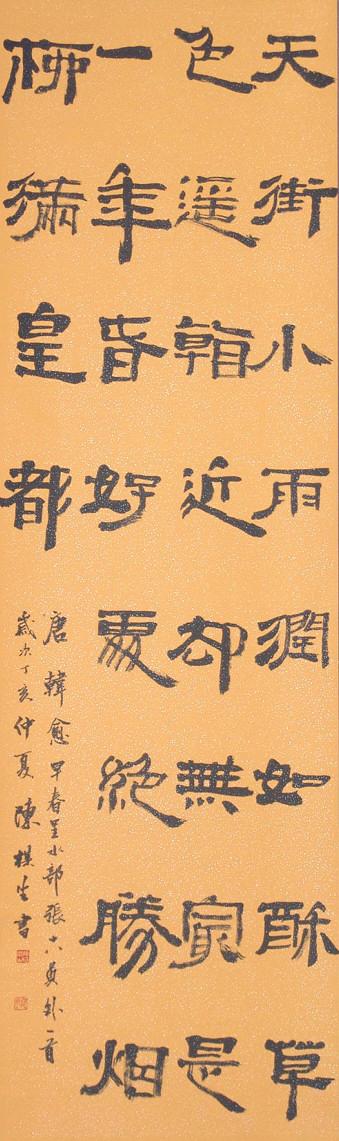 天街小雨潤如酥草
色遥看近却無最是
一年春好處絶勝烟
柳滿皇都
唐韓愈早春呈水部張十八員外一首
歲次丁亥仲夏陳棋生書